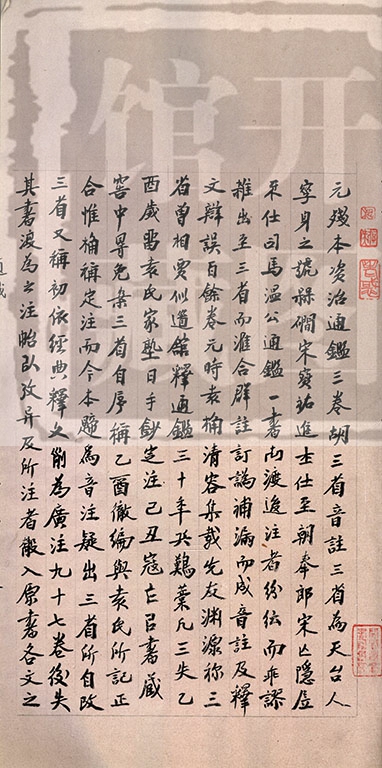 元殘本資治通鑑三卷胡三省音註三省為天台人
字身之號㵎宋寶祐進士仕至朝奉郎宋亡隱居
不仕司馬溫公通鑑一書南渡後注者紛紜而乖謬
雜出至三省而滙合群註訂譌補漏而成音註及釋
文辯誤百餘卷元時袁桷清容集載先友淵源稱三
省曾相賈似道舘釋通鑑三十年兵難藁凡三失乙
酉歲留袁氏家塾日手鈔定注己丑寇亡以書藏
窖中得免案三省自序稱乙酉徹編與袁氏所記正
合惟桷稱定注而今本題為音注疑出三省所自改
三省又稱初依經典釋文例為廣注九十七卷後失
其書復為之注始以攷異及所注者散入原書各文之